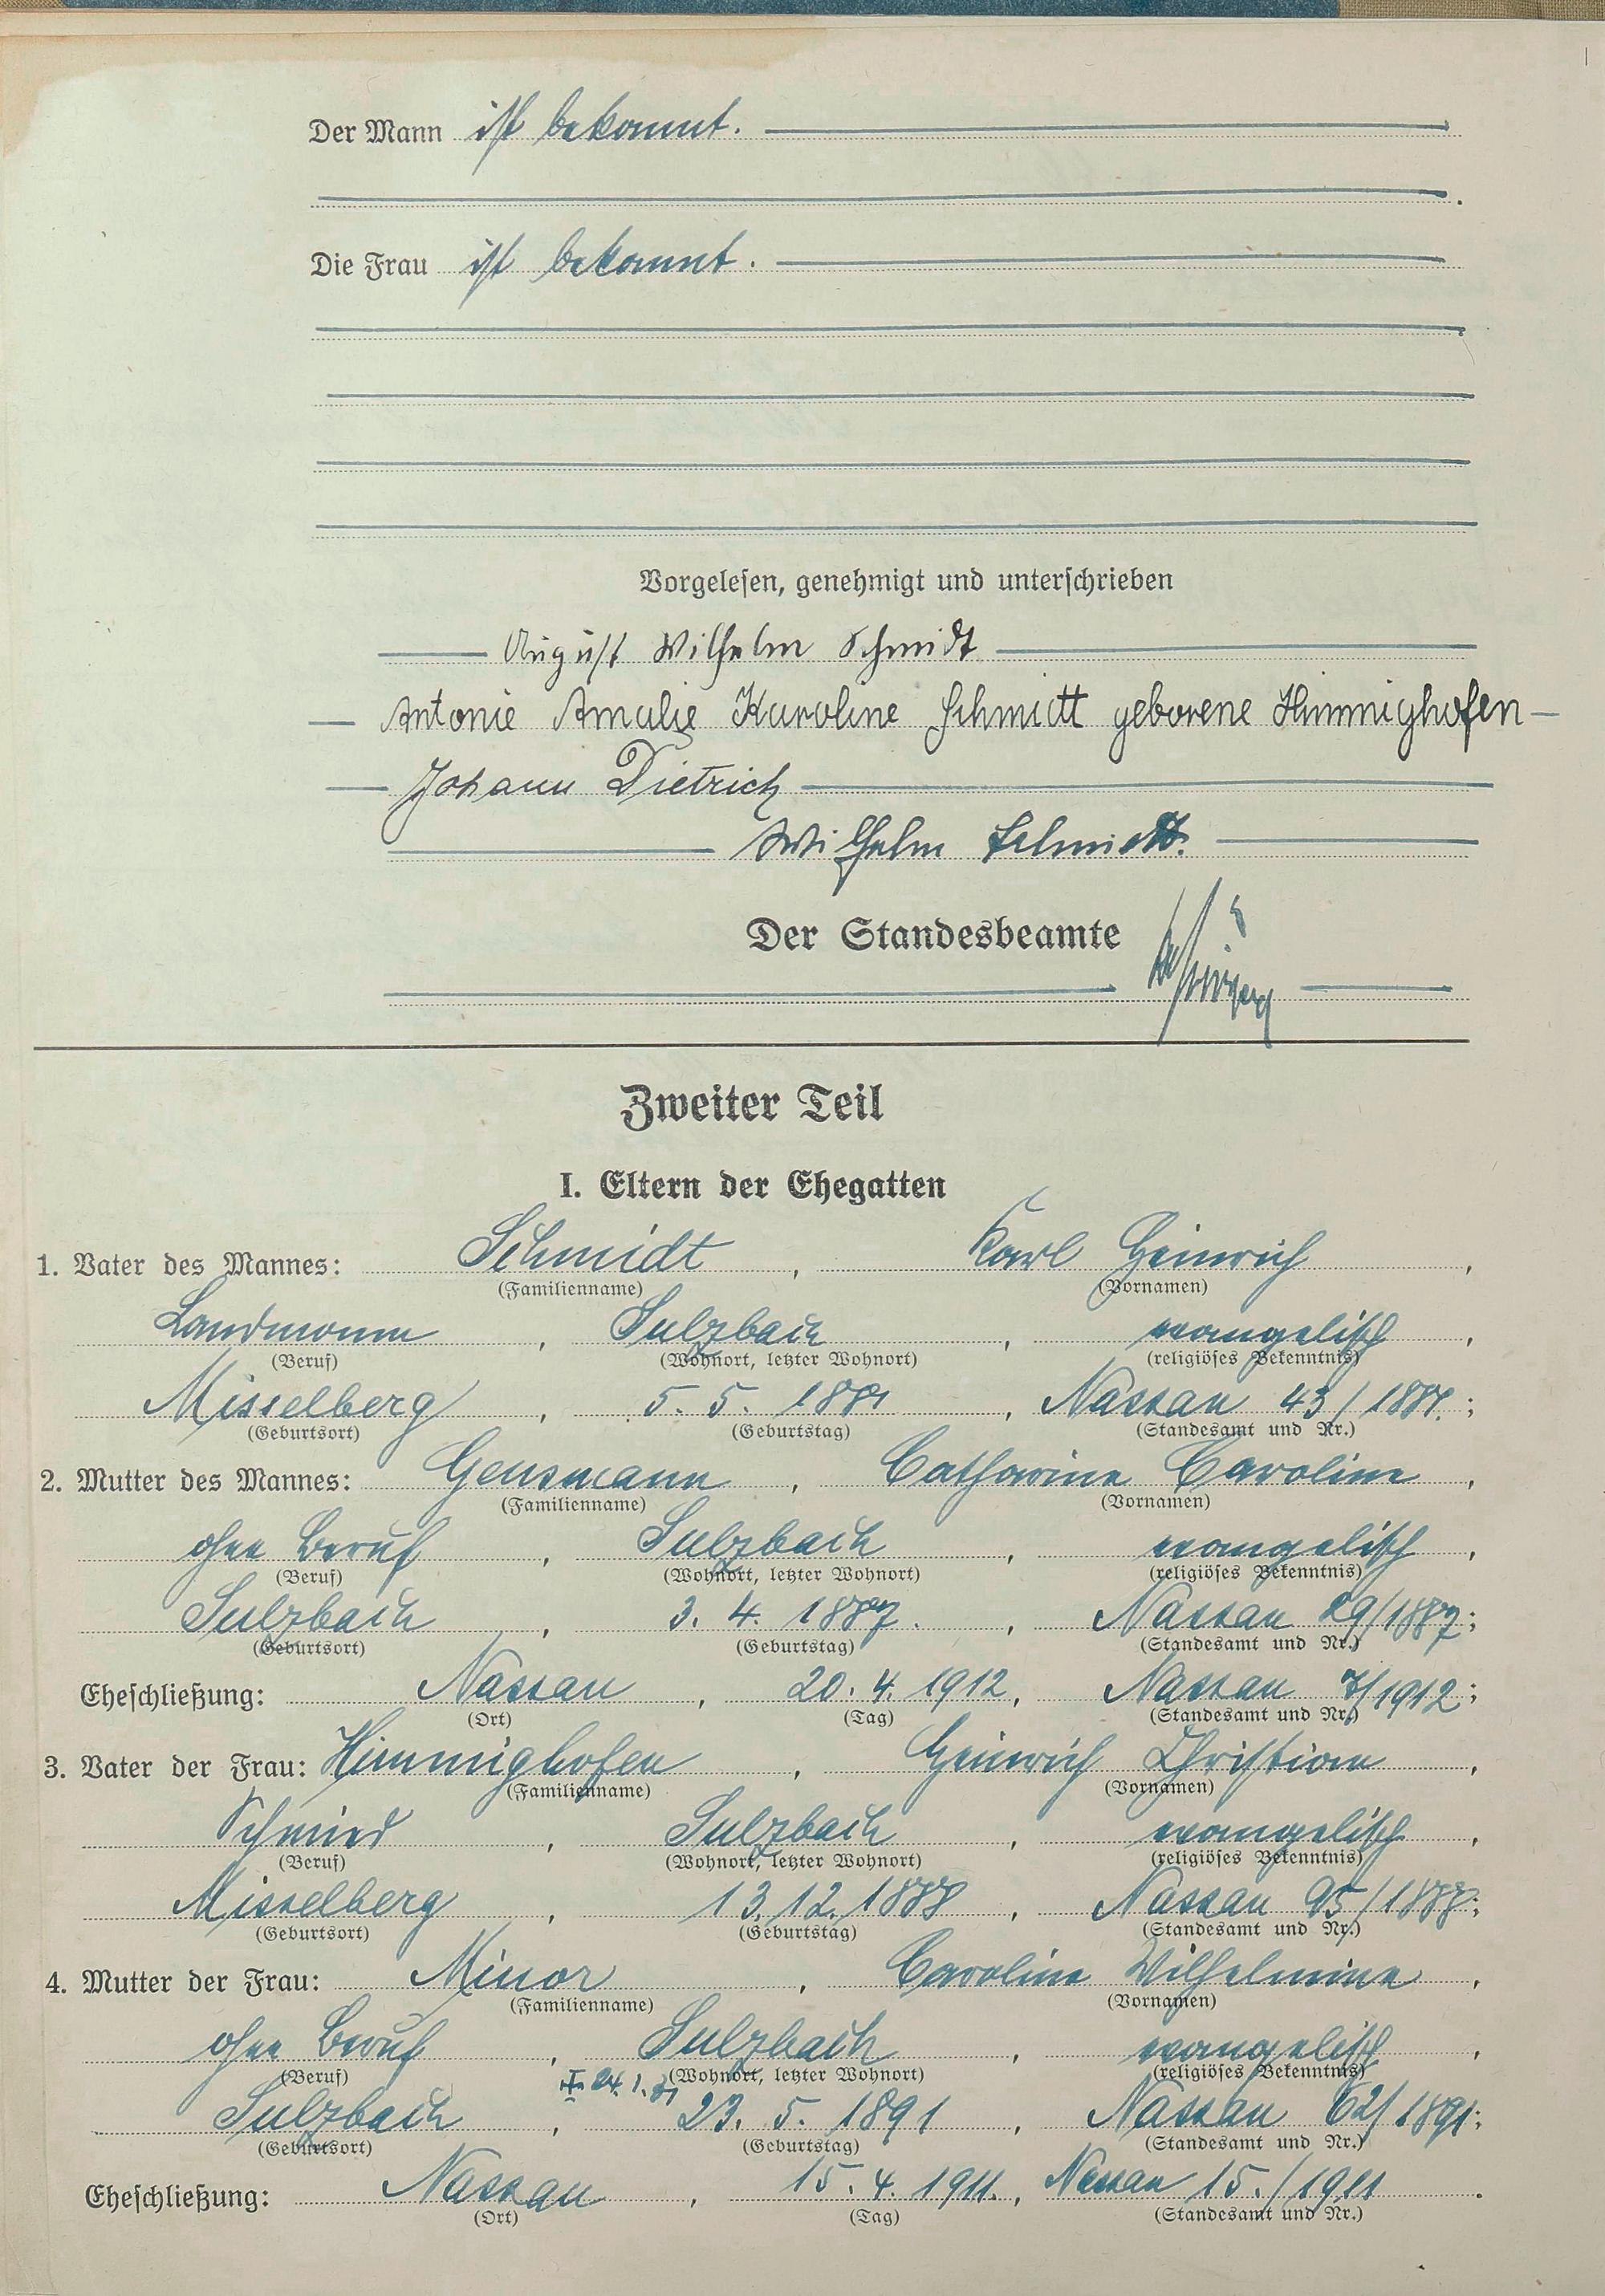 Der Mann ist bekannt.
Die Frau ist bekannt.
Vorgelesen, genehmigt und unterschrieben
August Wilhelm Schmidt
Antonie Amalie Karoline Schmidt geborene Himmighofen
Johann Dietrich
Wilhelm Schmidt.
Der Standesbeamte
Zweiter Teil
I. Eltern der Ehegatten
1. Vater des Mannes: Schmidt, Karl Heinrich,
(Familienname) (Vornamen)
Landmann, Sulzbach, evangelisch,
(Beruf) (Wohnort, letzter Wohnort) (religiöses Bekenntnis)
Misselberg, 5. 5. 1881, Nassau 43/1881.;
(Geburtsort) (Geburtstag) (Standesamt und Nr.)
2. Mutter des Mannes: Gensmann, Catharine Caroline,
(Familienname) (Vornamen)
ohne Beruf, Sulzbach, evangelisch,
(Beruf) (Wohnort, letzter Wohnort) (religiöses Bekenntnis)
Sulzbach, 3. 4. 1887., Nassau 29/1887;
(Geburtsort) (Geburtstag) (Standesamt und Nr.)
Eheschließung: Nassau, 20. 4. 1912, Nassau 7/1912;
(Ort) (Tag) (Standesamt und Nr.)
3. Vater der Frau: Himmighofen, Heinrich Christian,
(Familienname) (Vornamen)
Schmied, Sulzbach, evangelisch,
(Beruf) (Wohnort, letzter Wohnort) (religiöses Bekenntnis)
Misselberg, 13. 12. 1888, Nassau 95/1888;
(Geburtsort) (Geburtstag) (Standesamt und Nr.)
4. Mutter der Frau: Minor, Caroline Wilhelmine,
(Familienname) (Vornamen)
ohne Beruf, Sulzbach, evangelisch,
(Beruf) (Wohnort, letzter Wohnort) (religiöses Bekenntnis)
Sulzbach, 23. 5. 1891, Nassau 62/1891;
(Geburtsort) (Geburtstag) (Standesamt und Nr.)
Eheschließung: Nassau, 15. 4. 1911., Nassau 15./1911.
(Ort) (Tag) (Standesamt und Nr.)